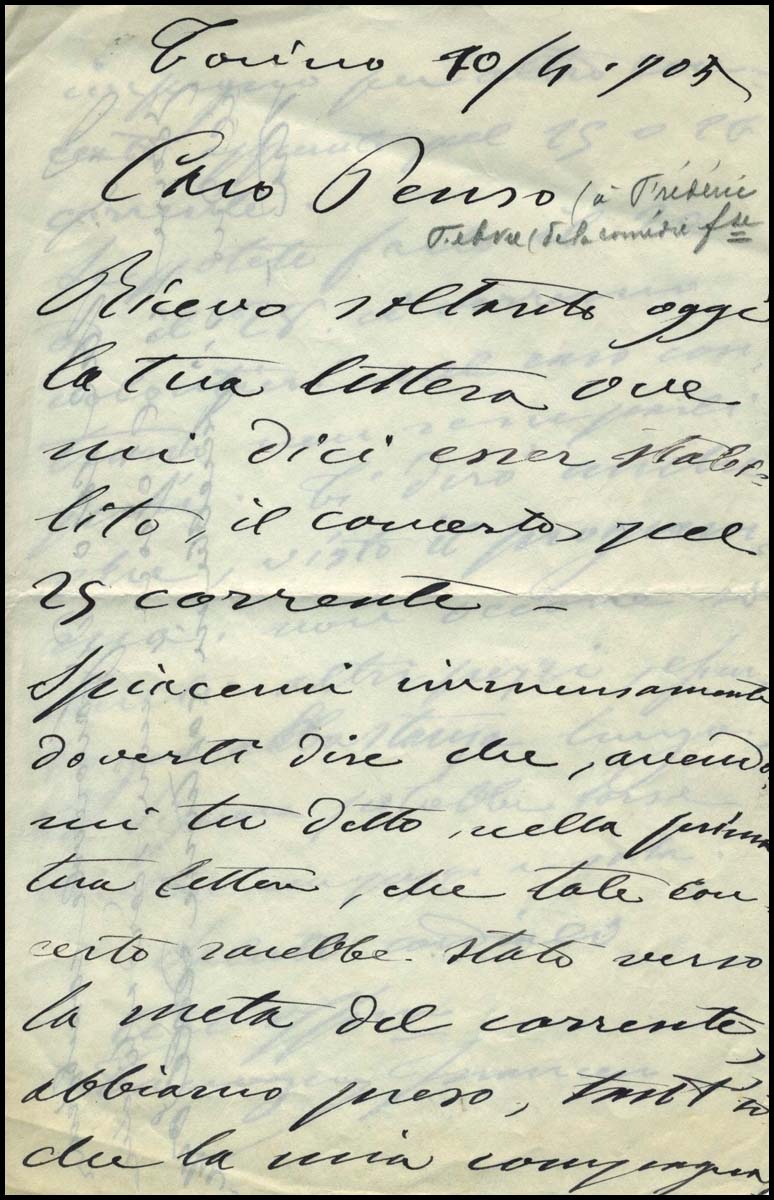 Torino 10/4.905
Caro Penso (à Frédéric
Febvre (de la comédie fse
Ricevo soltanto oggi
la tua lettera ove
mi dici esser stabi=
lito, il concerto pel
25 corrente –
Spiacemi immensamente
doverti dire che, avendo,
mi tu detto, nella prima
tua lettera, che tale con-
certo sarebbe stato verso
la metà del corrente,
abbiamo preso, tant'io
che la mia compagna,